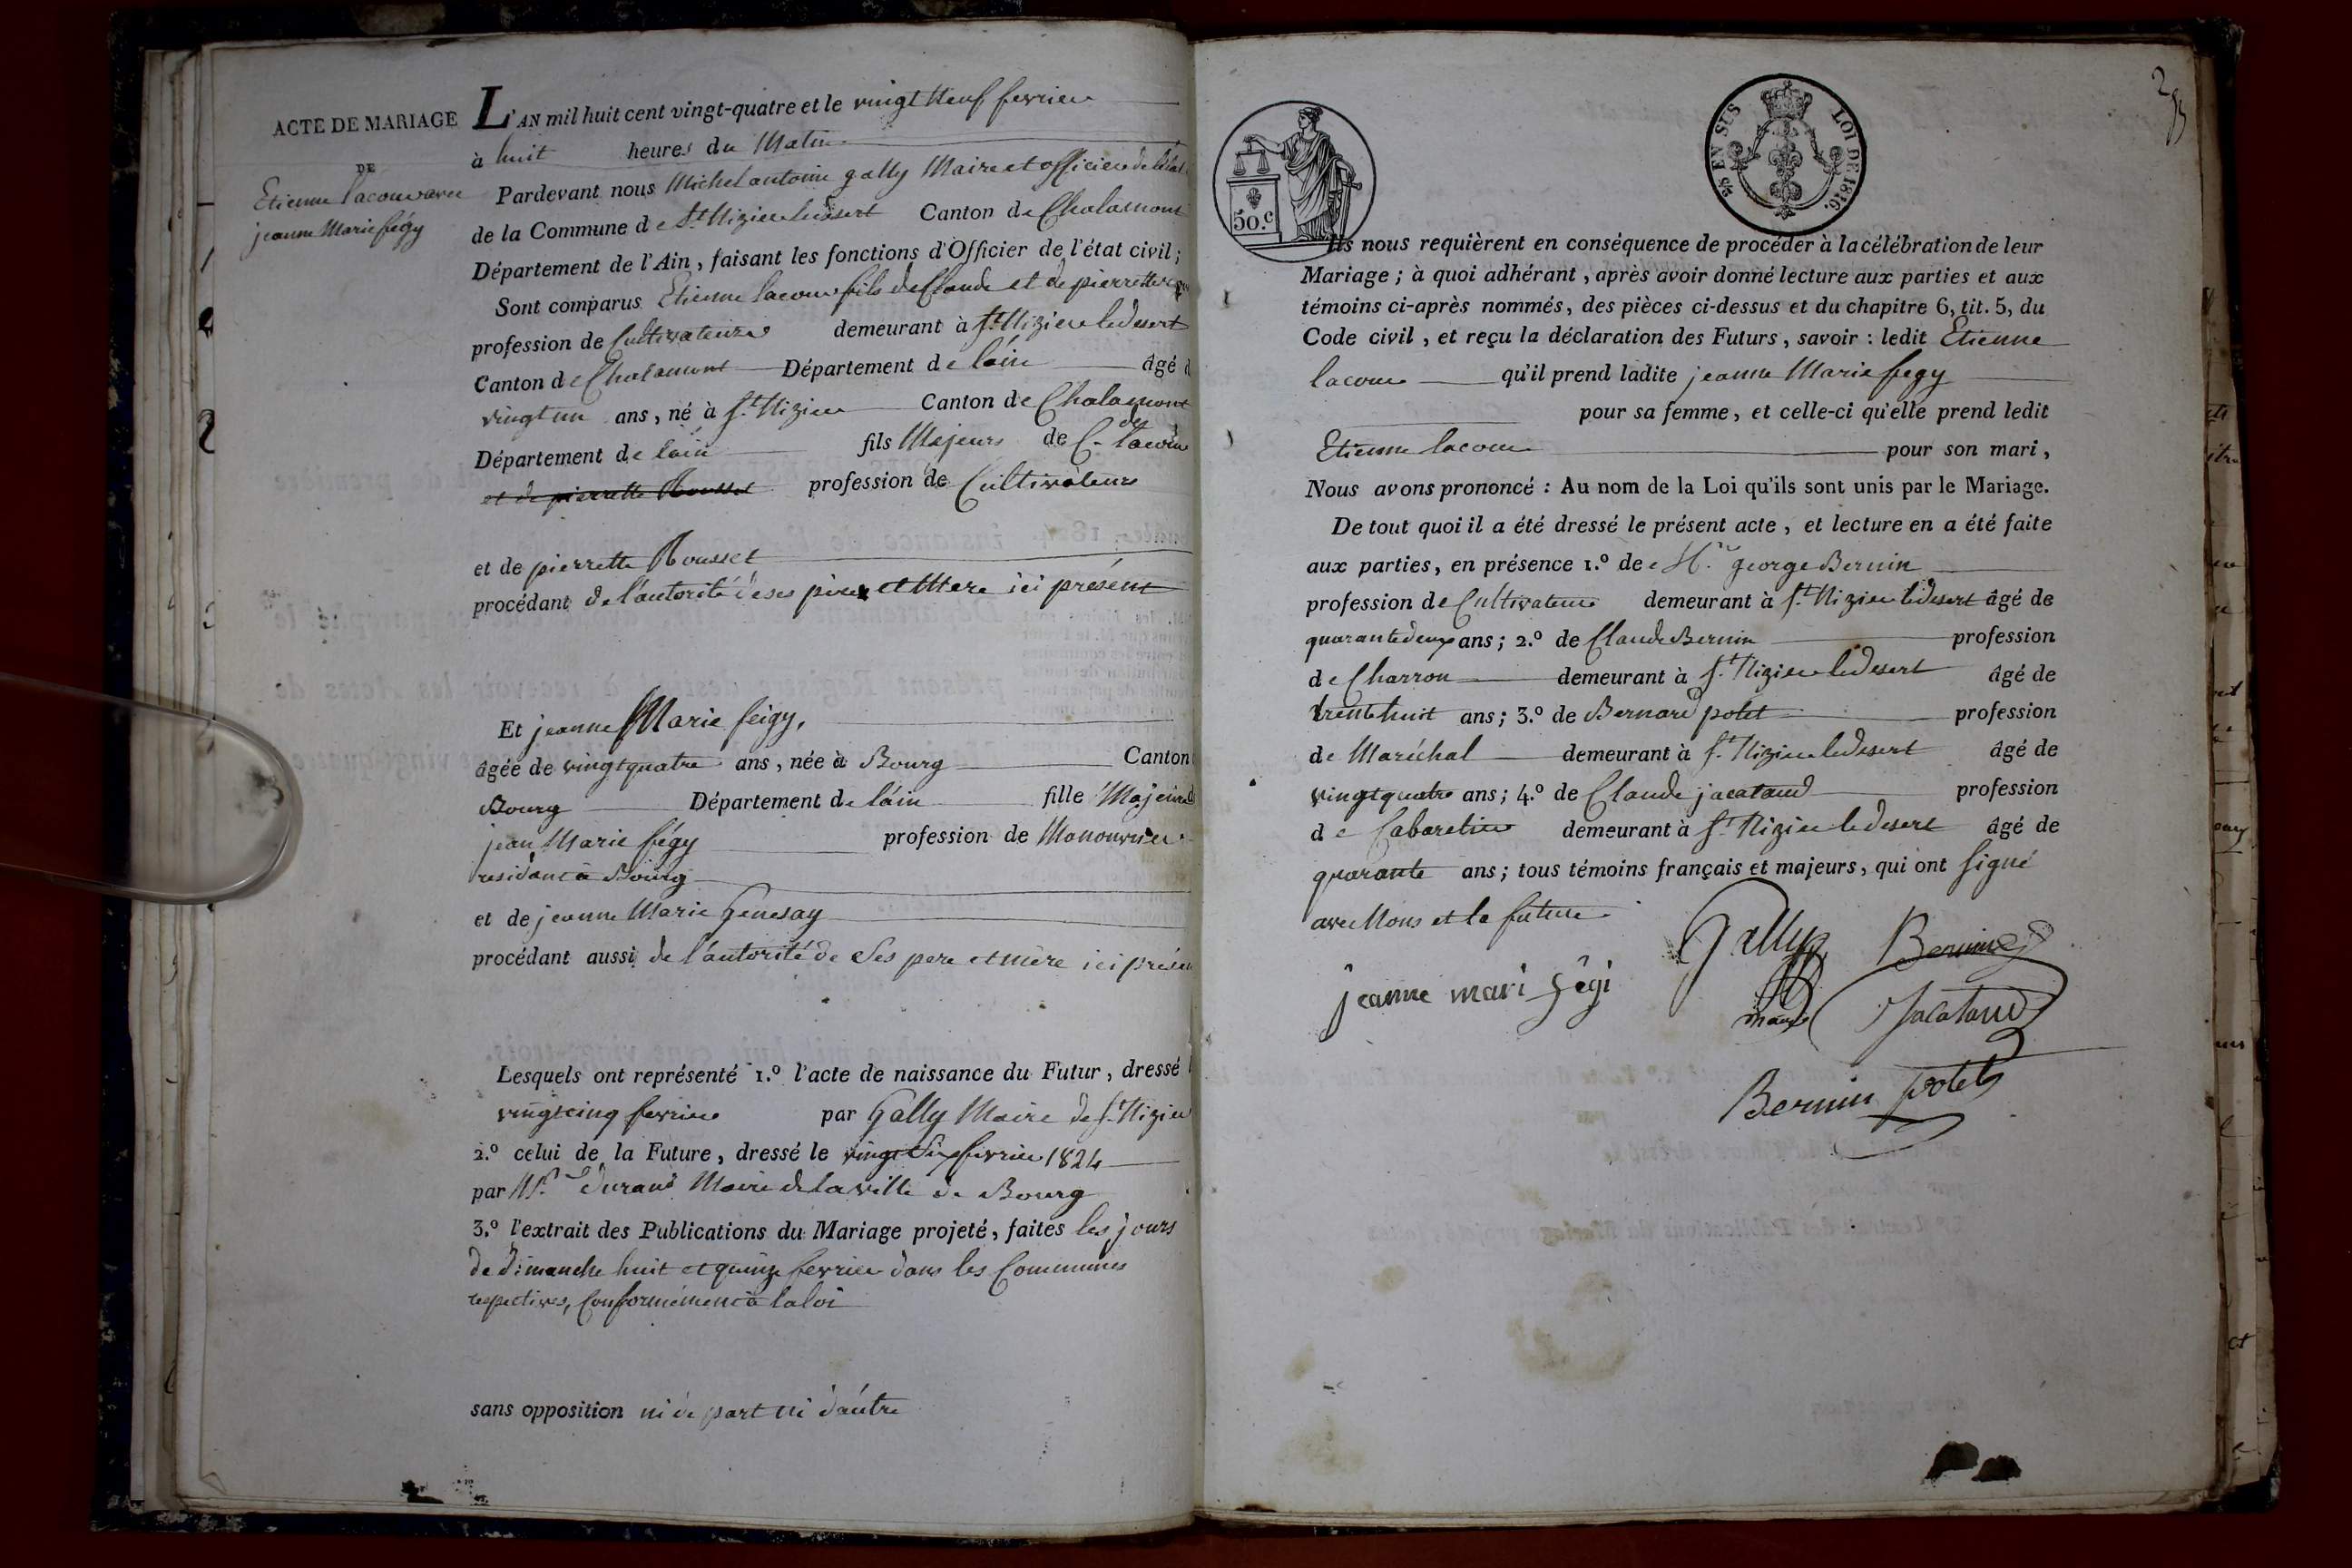 ACTE DE MARIAGE
DE
Etienne lacour avec
jeanne Marie fégy
L'AN mil huit cent vingt-quatre et le vingt Neuf fevrier
à huit heures du Matin
Pardevant nous Michel antoine gally Maire et officier de l'état
de la Commune de St Nizier le desert Canton de Chalamont
Département de l'Ain, faisant les fonctions d'Officier de l'état civil;
Sont comparus Etienne lacour fils de Claude et de pierrette
profession de Cultivateurs demeurant à St Nizier le desert
Canton de Chalamont Département de l'ain âgé d
vingt un ans, né à St Nizier Canton de Chalamont
Département de lain fils Majeur de C. lacour
et de pierrette Rousset profession de Cultivateur
et de pierrette Rousset
procédant de l'autorité de ses père et Mere ici présent
Et jeanne Marie feigy,
âgée de vingt quatre ans, née à Bourg Canton
Bourg Département de l'ain fille Majeure
jean Marie fégy profession de Manouvrier
residant à Bourg
et de jeanne Marie Genesay
procédant aussi de l'autorité de Ses pere et mère ici présen
Lesquels ont représenté 1.º l'acte de naissance du Futur, dressé l
vingt cinq fevrier par Gally Maire de St Nizier
2.º celui de la Future, dressé le vingt Six fevrier 1824
par Mr. durand Maire de la ville de Bourg
3.º l'extrait des Publications du Mariage projeté, faites les jours
de dimanche huit et quinze fevrier dans les Communes
respectives, Conformément à la loi
sans opposition ni de part ni d'autre
295
50.c
EN SUS
LOI DE 1816.
Ils nous requièrent en conséquence de procéder à la célébration de leur
Mariage; à quoi adhérant, après avoir donné lecture aux parties et aux
témoins ci-après nommés, des pièces ci-dessus et du chapitre 6, tit. 5, du
Code civil, et reçu la déclaration des Futurs, savoir: ledit Etienne
lacour qu'il prend ladite jeanne Marie fegy
pour sa femme, et celle-ci qu'elle prend ledit
Etienne lacour pour son mari,
Nous avons prononcé: Au nom de la Loi qu'ils sont unis par le Mariage.
De tout quoi il a été dressé le présent acte, et lecture en a été faite
aux parties, en présence 1.º de Mr. george Bernin
profession de Cultivateur demeurant à St Nizier le desert âgé de
quarante deux ans; 2.º de Claude Bernin profession
de Charron demeurant à St Nizier le desert âgé de
trente huit ans; 3.º de Bernard polet profession
de Maréchal demeurant à St Nizier le desert âgé de
vingt quatre ans; 4.º de Claude jacataud profession
de Cabaretier demeurant à St Nizier le desert âgé de
quarante ans; tous témoins français et majeurs, qui ont Signé
avec Nous et la future
Gally Bernin
jeanne mari fégi
maire Jacataud
Bernin polet